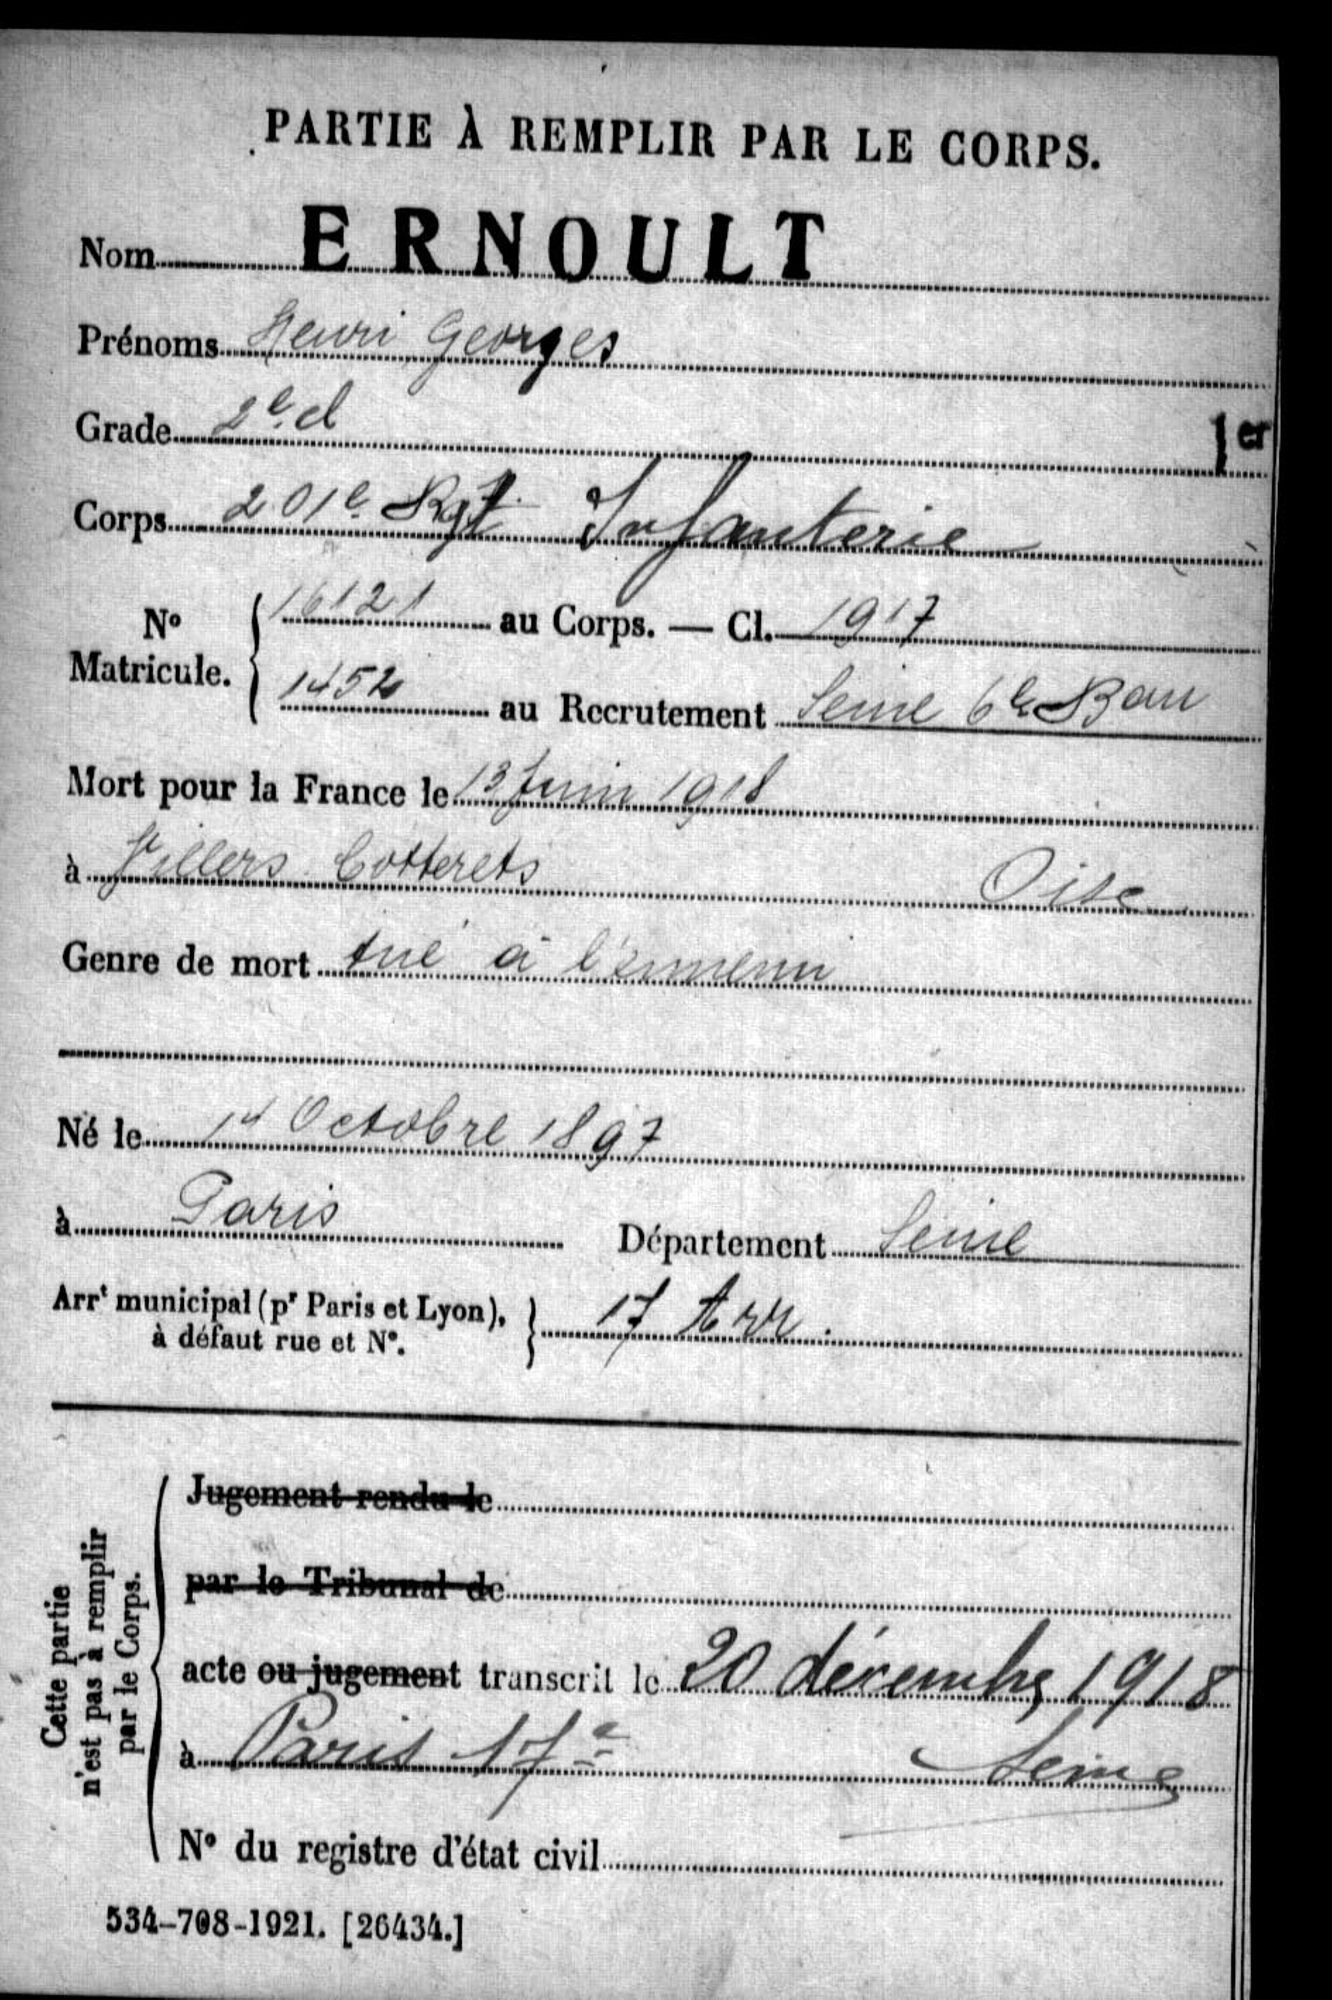 PARTIE À REMPLIR PAR LE CORPS.
Nom ERNOULT
Prénoms Henri Georges
Grade 2e cl
1er
Corps 201e Rgt Infanterie
No Matricule. { 16121 au Corps. — Cl. 1917
1452 au Recrutement Seine 6e Bau
Mort pour la France le 13 Juin 1918
à Villers Cotterets Oise
Genre de mort tué à l'ennemi
Né le Octobre 1897
à Paris Département Seine
Arrt municipal (pr Paris et Lyon), } 17 Arr.
à défaut rue et No.
Cette partie
n'est pas à remplir
par le Corps.
Jugement rendu le
par le Tribunal de
acte ou jugement transcrit le 20 décembre 1918
à Paris 17e Seine
No du registre d'état civil
534-708-1921. [26434.]